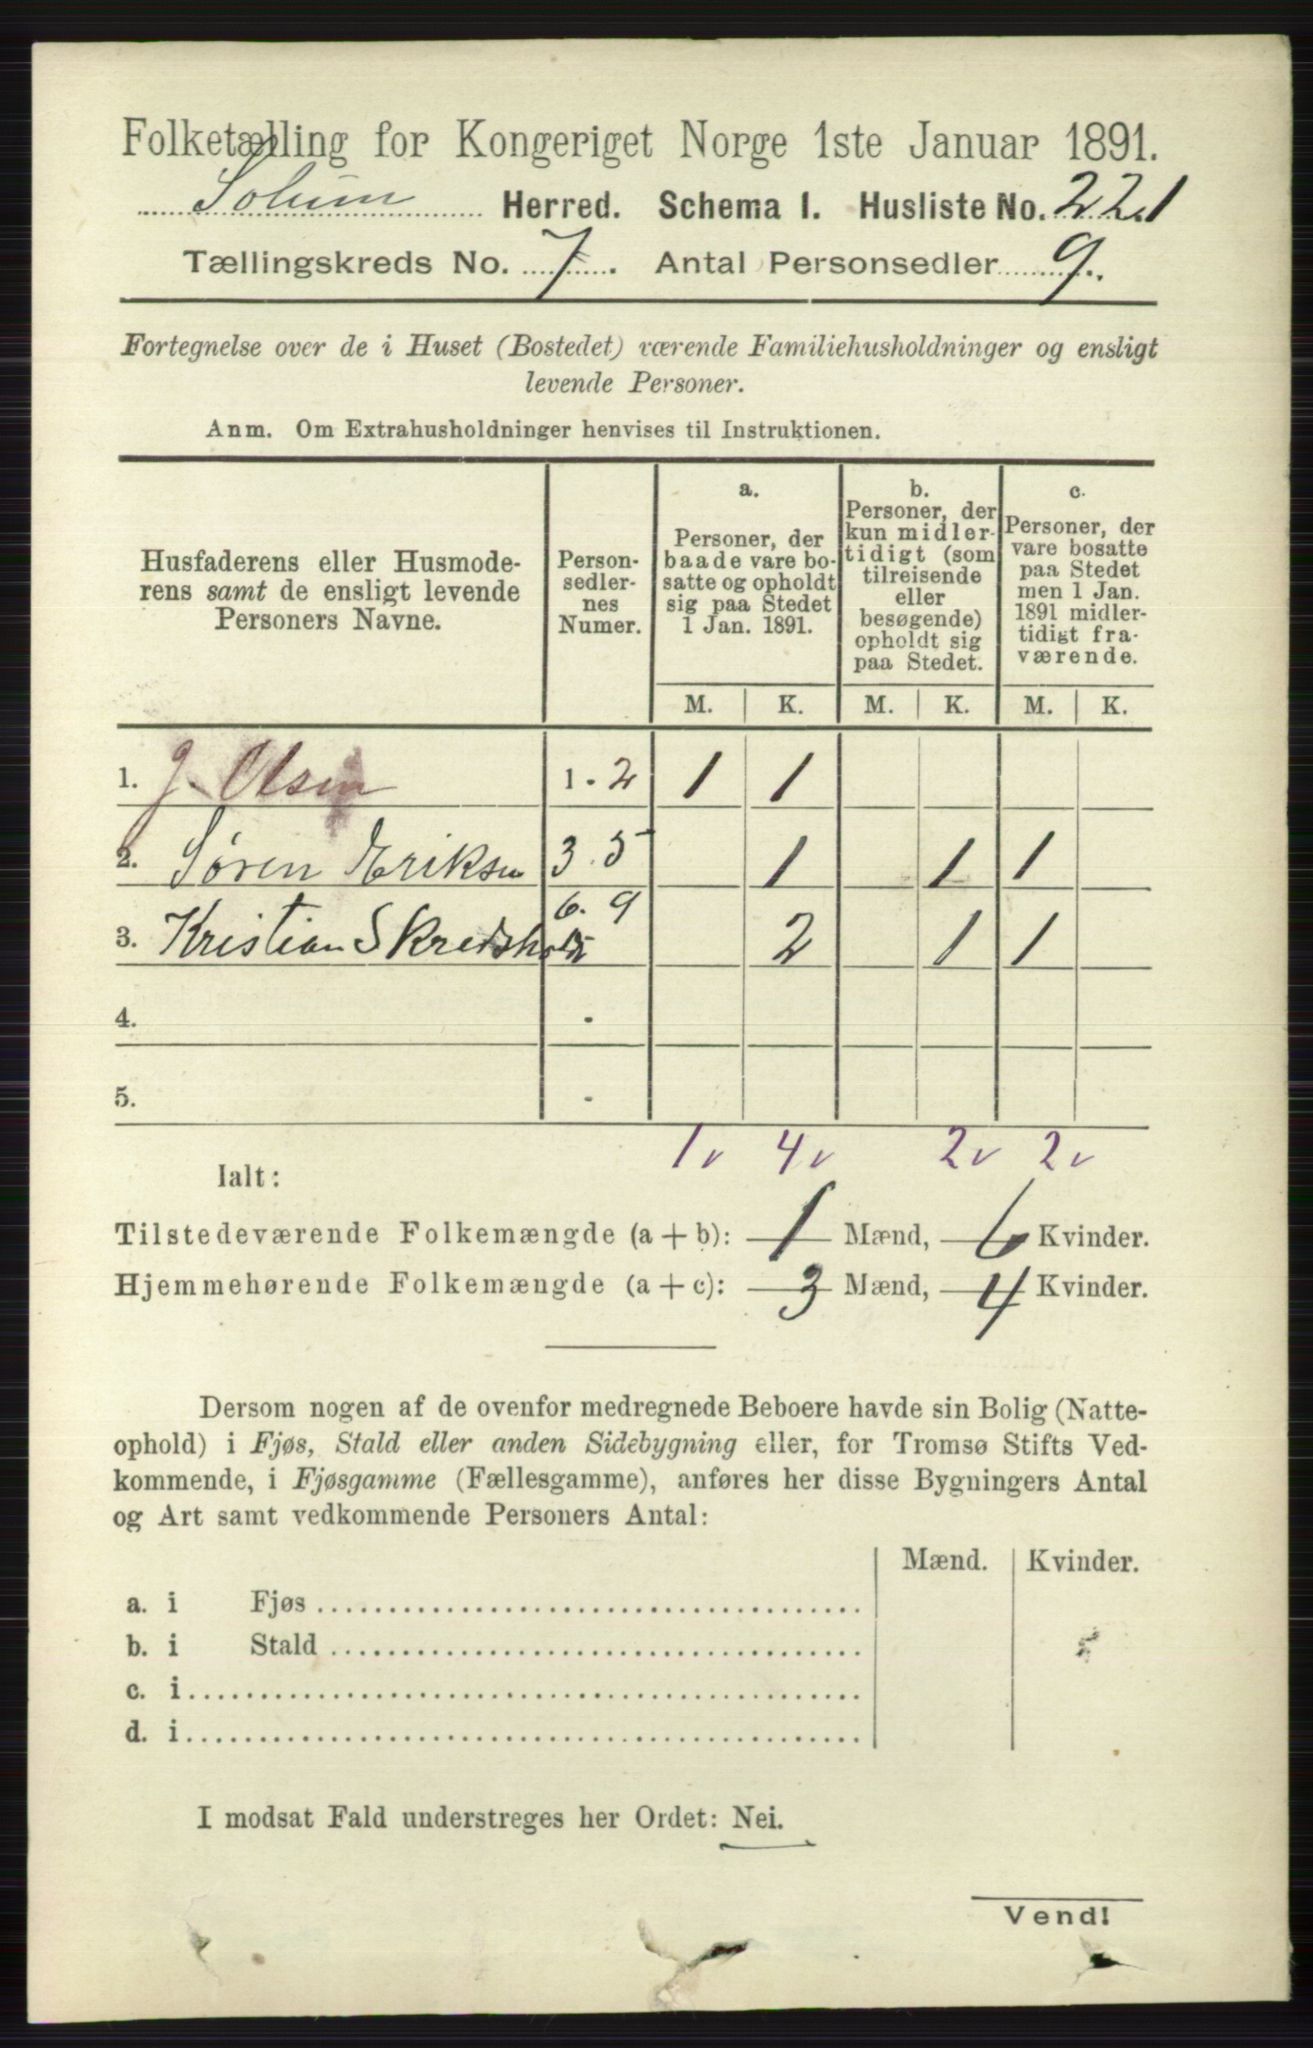 Folketælling for Kongeriget Norge 1ste Januar 1891.
Solum Herred. Schema 1. Husliste No. 221
Tællingskreds No. 7. Antal Personsedler 9.
Fortegnelse over de i Huset (Bostedet) værende Familiehusholdninger og ensligt
levende Personer.
Anm. Om Extrahusholdninger henvises til Instruktionen.
Husfaderens eller Husmode-
rens samt de ensligt levende
Personers Navne.
Person-
sedler-
nes
Numer.
a.
Personer, der
baade vare bo-
satte og opholdt
sig paa Stedet
1 Jan. 1891.
b.
Personer, der
kun midler-
tidigt (som
tilreisende
eller
besøgende)
opholdt sig
paa Stedet.
c.
Personer, der
vare bosatte
paa Stedet
men 1 Jan.
1891 midler-
tidigt fra-
værende.
M. K. M. K. M. K.
1. J. Olsen 1 - 2 1 1
2. Søren Eriksen 3.5 1 1 1
6. 9
3. Kristian Skredsholt 2 1 1
4. -
5. -
1 v 4 v 2 v 2 v
Ialt:
Tilstedeværende Folkemængde (a + b): 1 Mænd, 6 Kvinder.
Hjemmehørende Folkemængde (a + c): 3 Mænd, 4 Kvinder.
Dersom nogen af de ovenfor medregnede Beboere havde sin Bolig (Natte-
ophold) i Fjøs, Stald eller anden Sidebygning eller, for Tromsø Stifts Ved-
kommende, i Fjøsgamme (Fællesgamme), anføres her disse Bygningers Antal
og Art samt vedkommende Personers Antal:
Mænd. Kvinder.
a. i Fjøs
b. i Stald
c. i
d. i
I modsat Fald understreges her Ordet: Nei.
Vend!